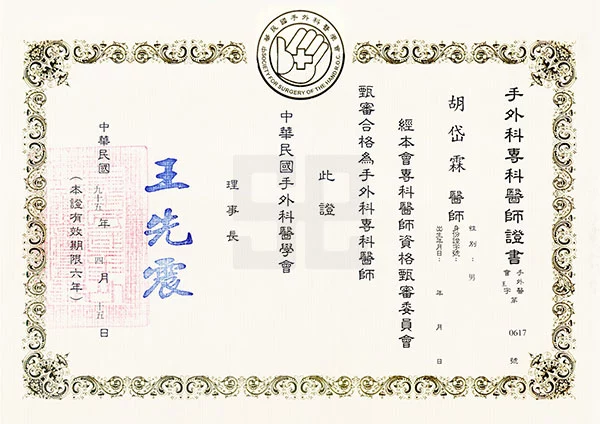 中華民國手外科醫學會
SOCIETY FOR SURGERY OF THE HAND, R.O.C.
手外科專科醫師證書
手外醫
會 字第 0617 號
胡岱霖 醫師
性別：男
身份證字號：
出生年月日： 年 月 日
經本會專科醫師資格甄審委員會
甄審合格為手外科專科醫師
此證
中華民國手外科醫學會
理事長
王先震
中華民國 九十五 年 四 月 十五 日
（本證有效期限六年）